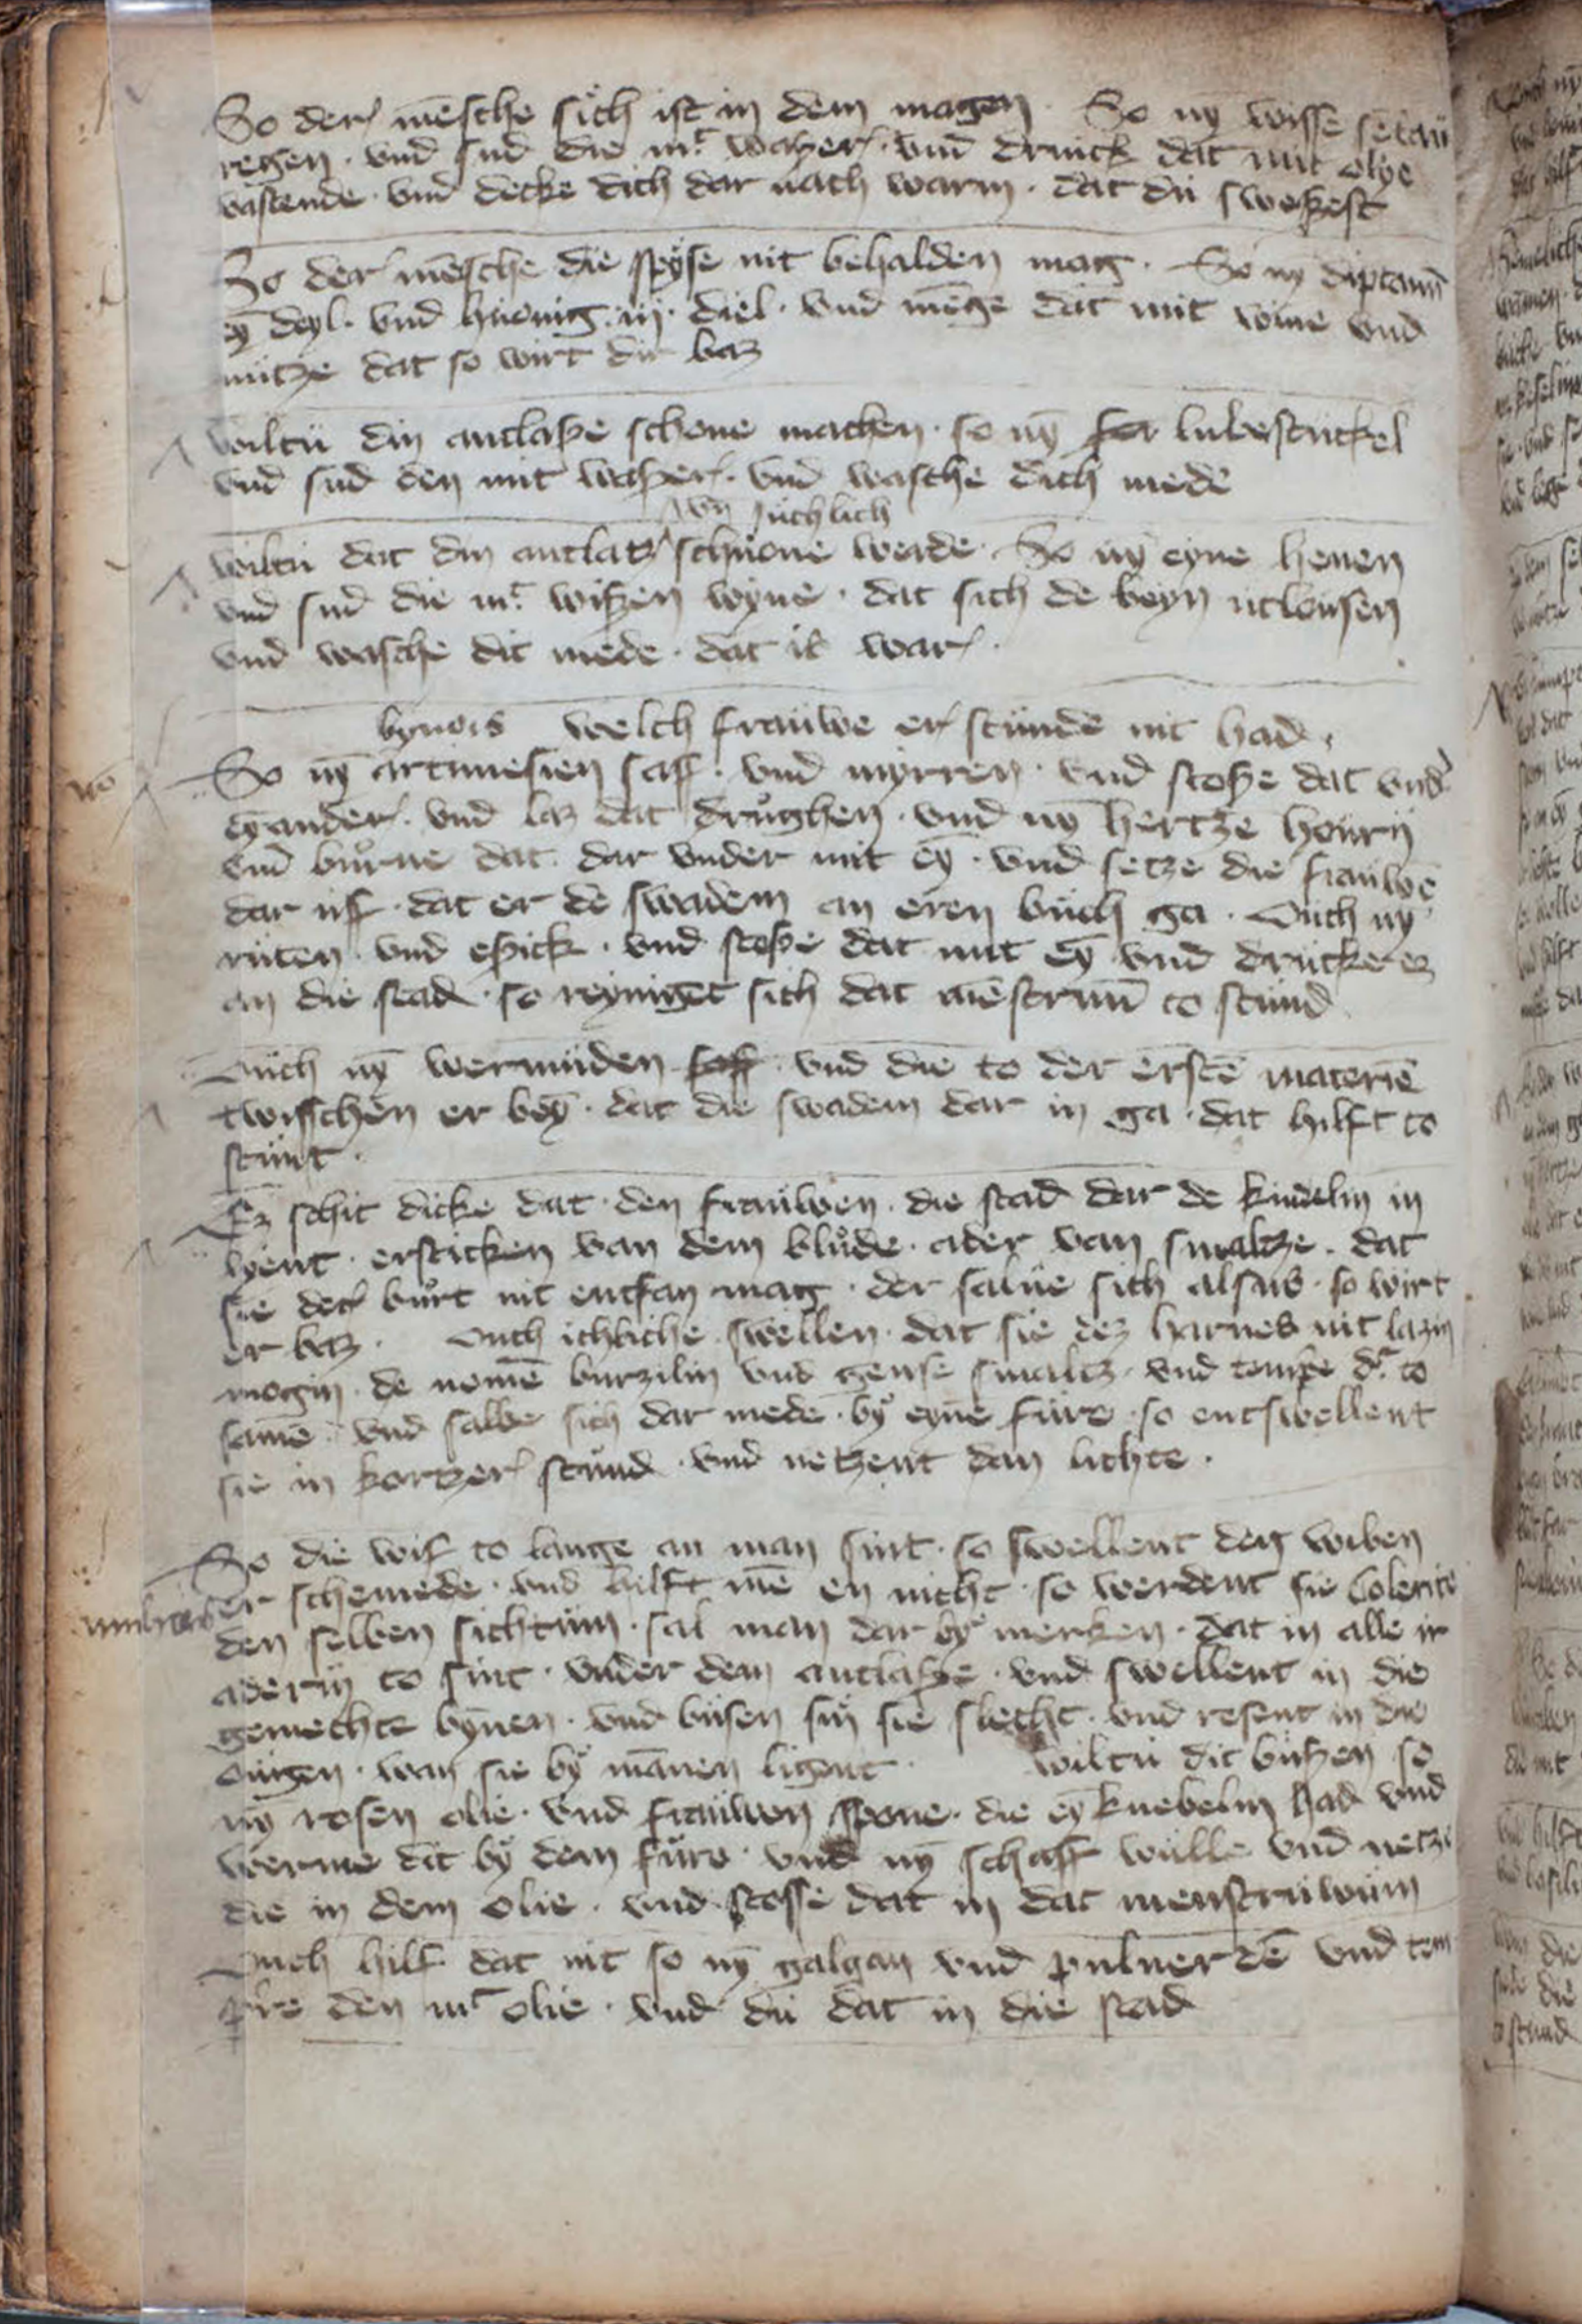 So der mēsche sich ist in dem magen · So nȳ wisse
regen · vnd sud die mͭ waßer · vnd drinck dat mit olye
vastende · vnd decke dich dar nach warm · dat dü sweßest
So der mēsche die spÿse nit behalden mag · So nȳ diptamū
eȳ deyl · vnd huonig · iij · diel · vnd mēge dat mit wine vnd
nütze dat so wirt dir baz
wiltü din antlaße schone machen · so nȳ lubestückel
vnd sud den mit waßer · vnd wasche dich mede
vn̄ süchlich
wiltü dat din antlatz schuone werde · So nȳ eyne henen
vnd sud die mͭ wißen wyne · dat sich de beyn utlousen
vnd wasche dit mede · dat is war ·
bynois welch frauwe er stunde nit had ·
So nȳ artimesien saff · vnd mÿrren · vnd stoße dat vnd'
eȳander · vnd laz dat drughen · vnd nȳ hertze hourn
vnd burne dat dar vnder mit eȳ · vnd setze die frauwē
dar uff · dat er de swadem an eren buch ga · Ouch nȳ
ruten vnd epick · vnd stoße dat mit eȳ vnd drücke ez
an die stad · so reyniget sich dat mēstruū to stund
Ouch nȳ wermüden saff · vnd die to der erstē materiē
twisschen er beȳ · dat die swadem dar in ga · dat hilft to
stunt ·
Ez schit dicke dat den frauwen · die stad dar de kindelin in
lyent · ersticken van dem blude · ader van smaltze · dat
sie der burt nit entfan mag · der salue sich alsus · so wirt
er baz · Ouch ichliche swellen · dat sie dez harnes nit lazin
mogin · de nomē burzilin vnd gense smaltz · vnd tempe dͬ to
samē · vnd salbe sich dar mede · bÿ eynē füre · so entswellent
sie in kortzer stund · vnd netzent dan lichte ·
So die wif to lange an man sint · so swellent den wiben
er schemede · vnd hilft mē en nicht · so werdent sie Colerice
den selben sichtum · sal man dar bÿ merken · dat in alle ir
adern to sint · vnder dem antlaße · vnd swellent in die
gemechte bȳnen · vnd busen sin sie slecht · vnd resent in die
ougen · wan sie bÿ mānen ligent · wiltü dit büßen so
nȳ rosen olie · vnd frauwen spone · die eȳ knebelin had vnd
werme dit bÿ dem füre · vnd nȳ schaff wulle vnd netze
die in dem olie · vnd stosse dat in dat menstruwum
Ouch hilf dat nit so nȳ galgan vnd puluer dē vnd tem
pͥre den mͭ olie · vnd du dat in die stad